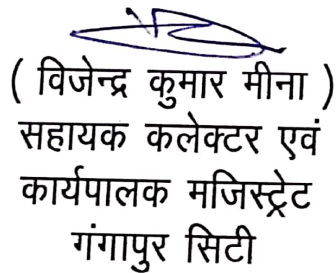 ( विजेन्द्र कुमार मीना )
सहायक कलेक्टर एवं
कार्यपालक मजिस्ट्रेट
गंगापुर सिटी